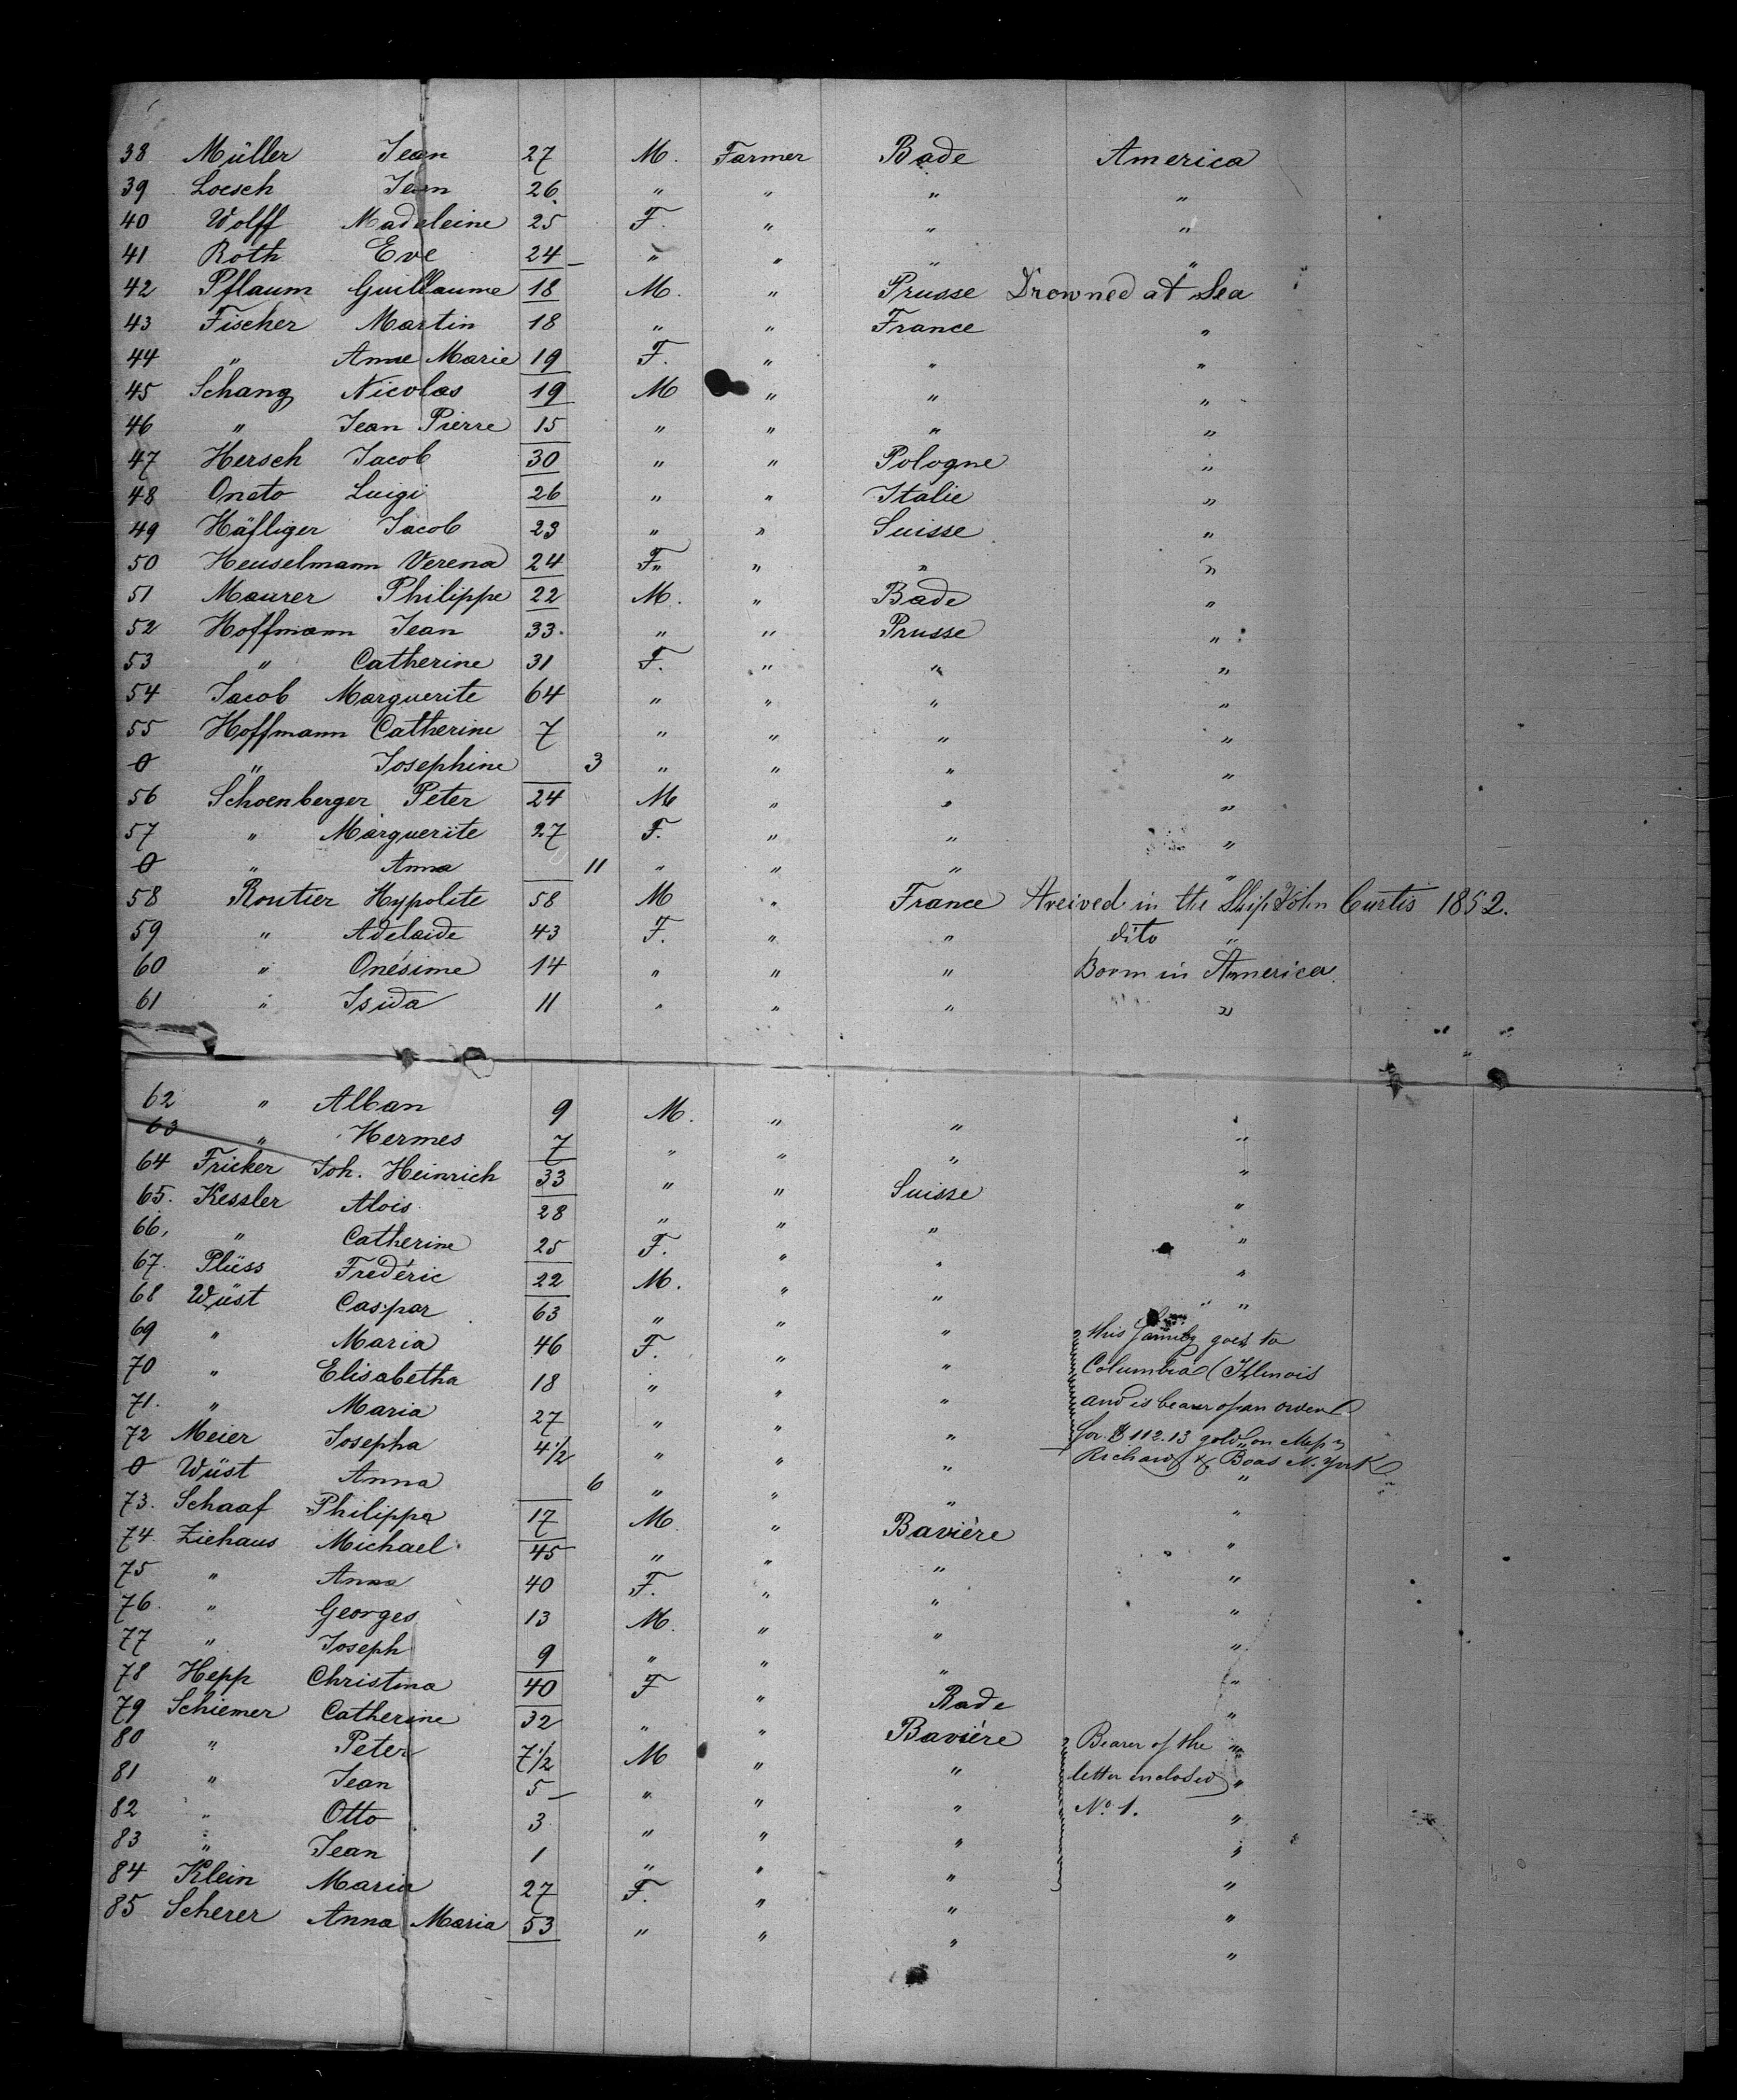 38 Müller Jean 27 M. Farmer Bade America
39 Loesch Jean 26. " " " "
40 Wolff Madeleine 25 F. " " "
41 Roth Eve 24 " " " "
42 Pflaum Guillaume 18 M. " Prusse Drowned at Sea "
43 Fischer Martin 18 " " France "
44 " Anne Marie 19 F. " " "
45 Schang Nicolas 19 M " " "
46 " Jean Pierre 15 " " " "
47 Hersch Jacob 30 " " Pologne "
48 Oneto Luigi 26 " " Italie "
49 Häfliger Jacob 23 " " Suisse "
50 Heuselmann Verena 24 F. " " "
51 Maurer Philippe 22 M. " Bade "
52 Hoffmann Jean 33. " " Prusse "
53 " Catherine 31 F. " " "
54 Jacob Marguerite 64 " " " "
55 Hoffmann Catherine 7 " " " "
0 " Josephine 3 " " " "
56 Schoenberger Peter 24 M " " "
57 " Marguerite 27 F. " " "
0 " Anna 11 " " " "
58 Routier Hypolite 58 M " France Areived in the Ship John Curtis 1852.
59 " Adelaide 43 F. " " dito "
60 " Onésime 14 " " " Born in America.
61 " Isida 11 " " " "
62 " Alban 9 M. " " "
63 " Hermes 7 " " " "
64 Fricker Joh. Heinrich 33 " " Suisse "
65. Kessler Alois 28 " " " "
66, " Catherine 25 F. " " "
67. Plüss Fredéric 22 M. " " "
68 Wüst Caspar 63 " " "
69 " Maria 46 F. " " this family goes to
70 " Elisabetha 18 " " " Columbia (Illinois
71. " Maria 27 " " " and is bearer of an order
72 Meier Josepha 4 1/2 " " " for $ 112.13 gold on
0 Wüst Anna 6 " " " Richard & Boas N. York
73. Schaaf Philippe 17 M. " Bavière "
74. Ziehaus Michael 45 " " " "
75 " Anna 40 F. " " "
76. " Georges 13 M. " " "
77 " Joseph 9 " " " "
78 Hepp Christina 40 F " Bade "
79 Schiemer Catherine 32 " " Bavière Bearer of the "
80 " Peter 7 1/2 M " " letter inclosed "
81 " Jean 5 " " " No. 1. "
82 " Otto 3 " " " "
83 " Jean 1 " " " "
84 Klein Maria 27 F. " " "
85 Scherer Anna Maria 53 " " " "